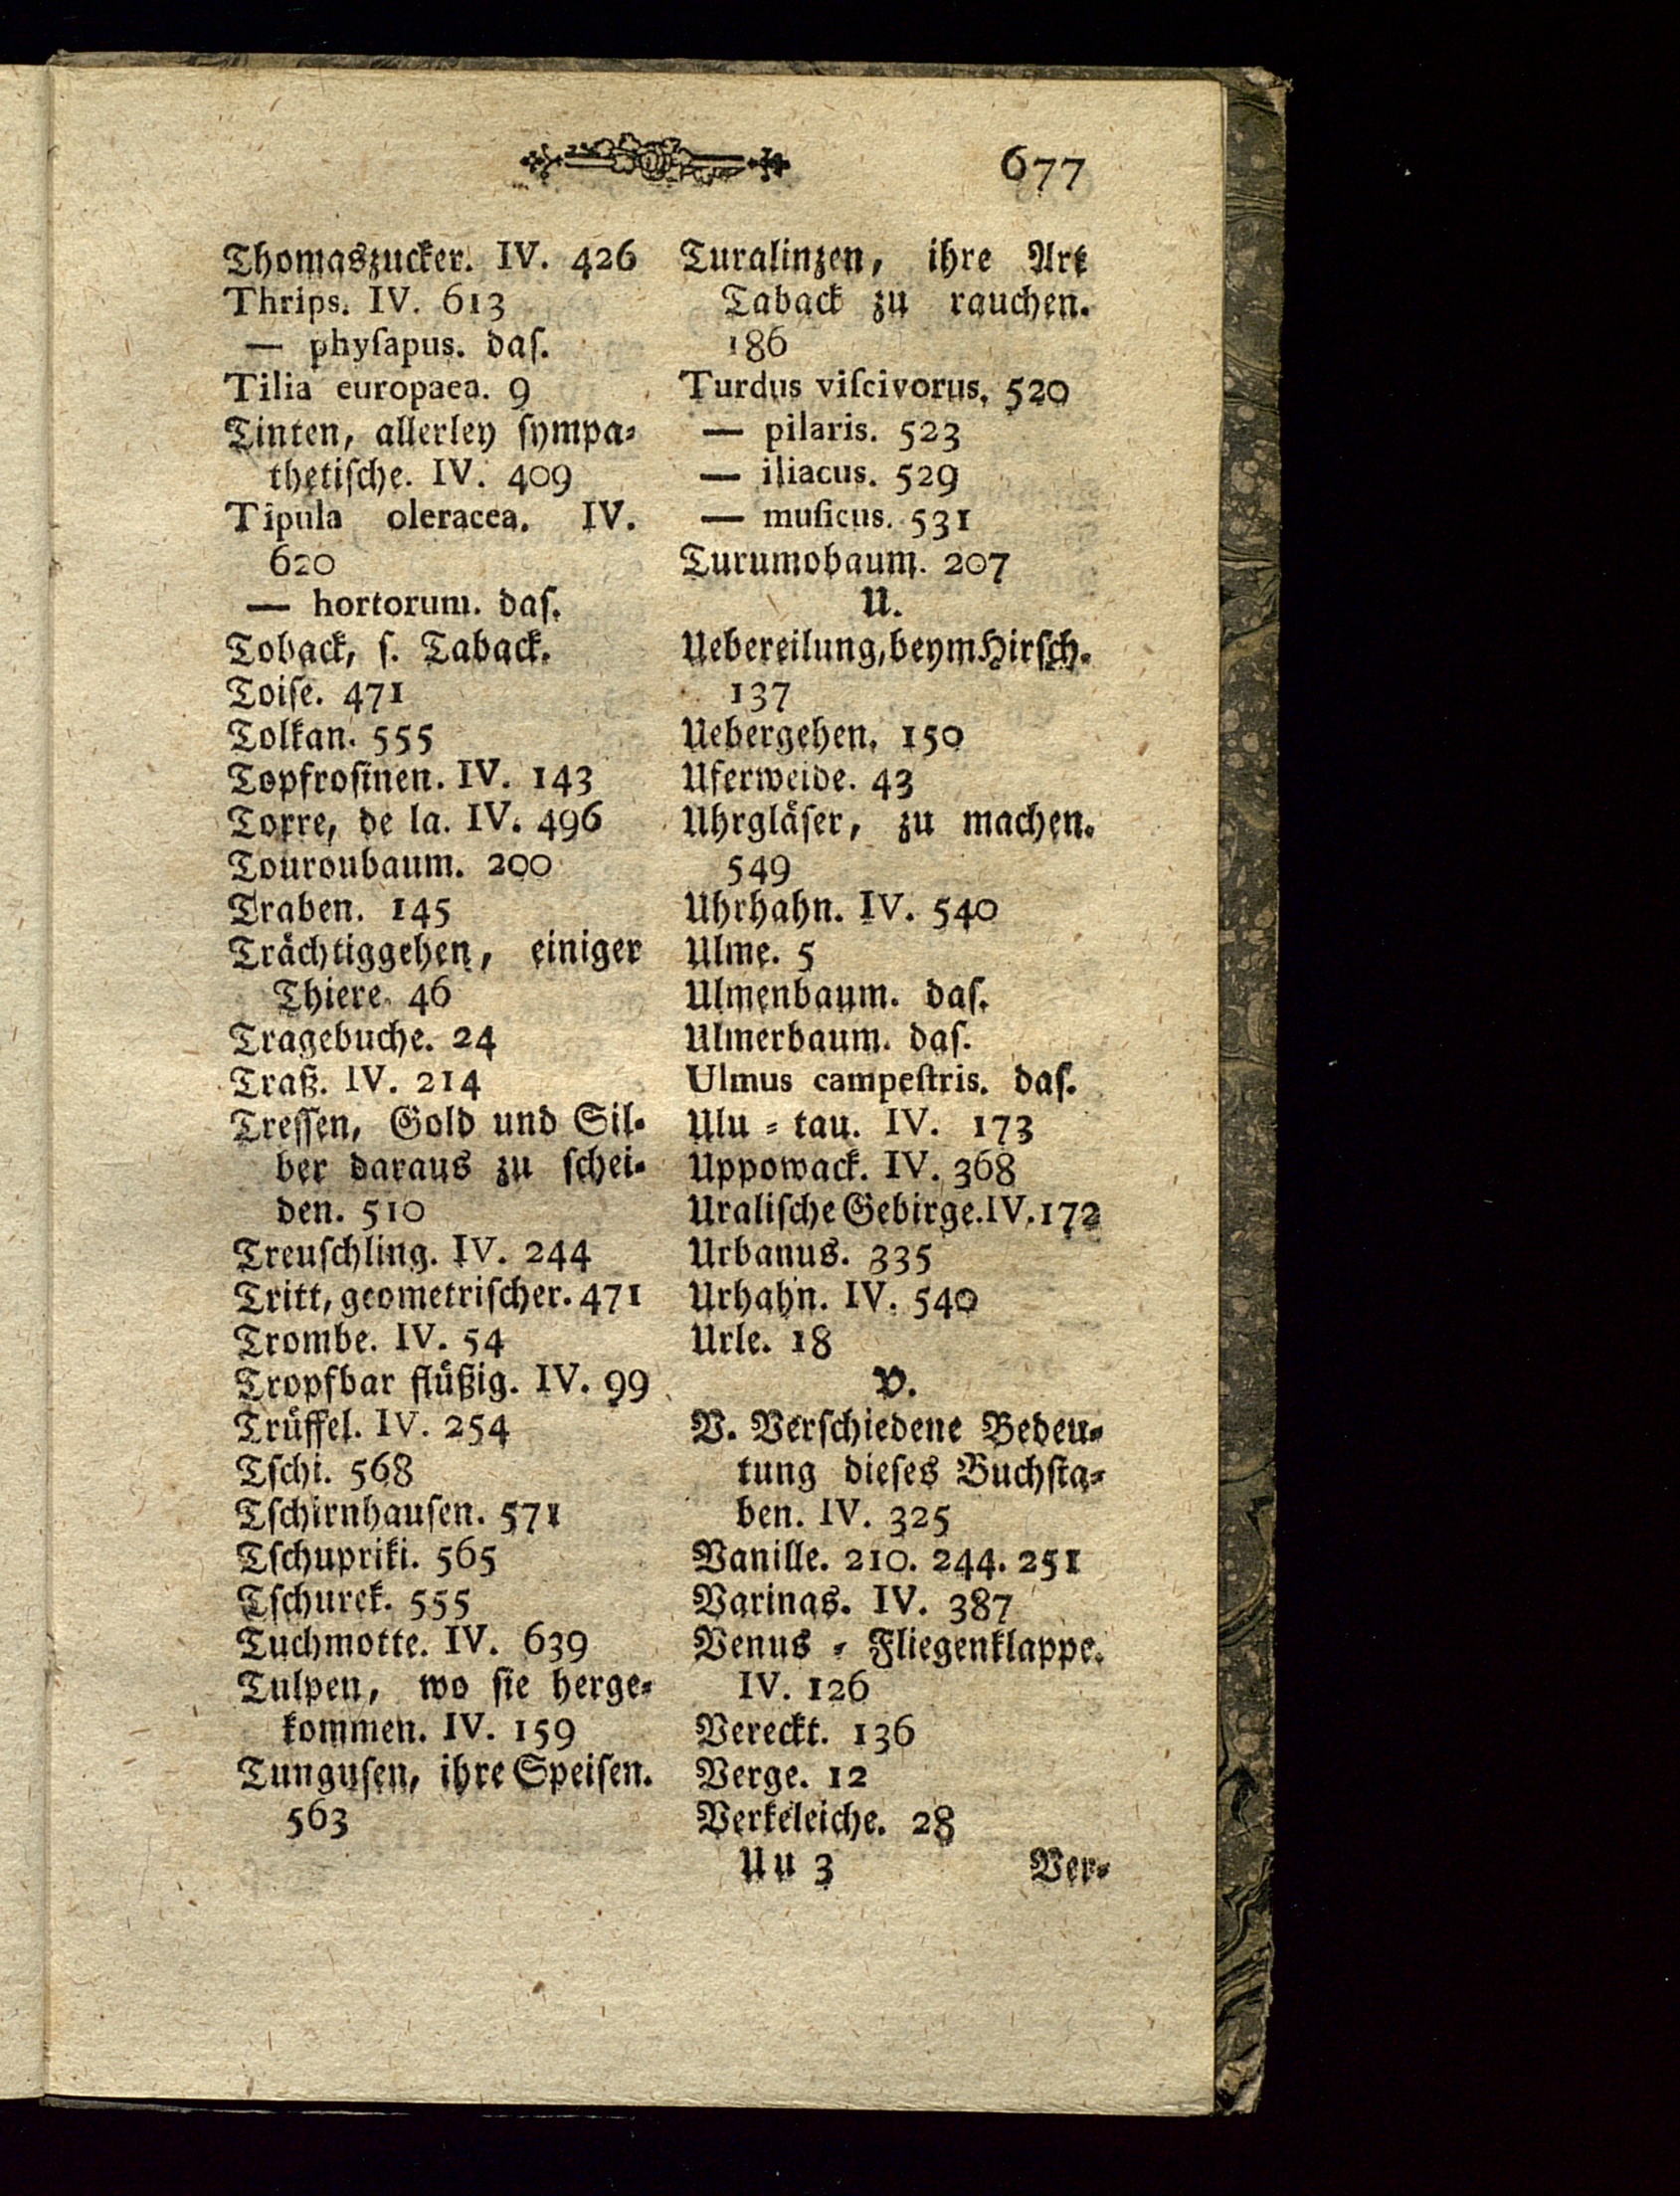 677
Thomaszucker. IV. 426
Thrips. IV. 613
— phyſapus. daſ.
Tilia europaea. 9
Tinten, allerley ſympa⸗
thetiſche. IV. 409
Tipula oleracea. IV.
620
— hortorum. daſ.
Toback, ſ. Taback.
Toiſe. 471
Tolkan. 555
Topfroſinen. IV. 143
Torre, de la. IV. 496
Touroubaum. 200
Traben. 145
Trächtiggehen, einiger
Thiere. 46
Tragebuche. 24
Traß. IV. 214
Treſſen, Gold und Sil⸗
ber daraus zu ſchei⸗
den. 510
Treuſchling. IV. 244
Tritt, geometriſcher. 471
Trombe. IV. 54
Tropfbar flüßig. IV. 99
Trüffel. IV. 254
Tſchi. 568
Tſchirnhauſen. 571
Tſchupriki. 565
Tſchurek. 555
Tuchmotte. IV. 639
Tulpen, wo ſie herge⸗
kommen. IV. 159
Tunguſen, ihre Speiſen.
563
Turalinzen, ihre Art
Taback zu rauchen.
186
Turdus viſcivorus. 520
— pilaris. 523
— iliacus. 529
— muſicus. 531
Turumobaum. 207
U.
Uebereilung, beym Hirſch.
137
Uebergehen. 150
Uferweide. 43
Uhrgläſer, zu machen.
549
Uhrhahn. IV. 540
Ulme. 5
Ulmenbaum. daſ.
Ulmerbaum. daſ.
Ulmus campeſtris. daſ.
Ulu ⸗ tau. IV. 173
Uppowack. IV. 368
Uraliſche Gebirge. IV. 172
Urbanus. 335
Urhahn. IV. 540
Urle. 18
V.
V. Verſchiedene Bedeu⸗
tung dieſes Buchſta⸗
ben. IV. 325
Vanille. 210. 244. 251
Varinas. IV. 387
Venus ⸗ Fliegenklappe.
IV. 126
Vereckt. 136
Verge. 12
Verkeleiche. 28
Uu 3 Ver⸗